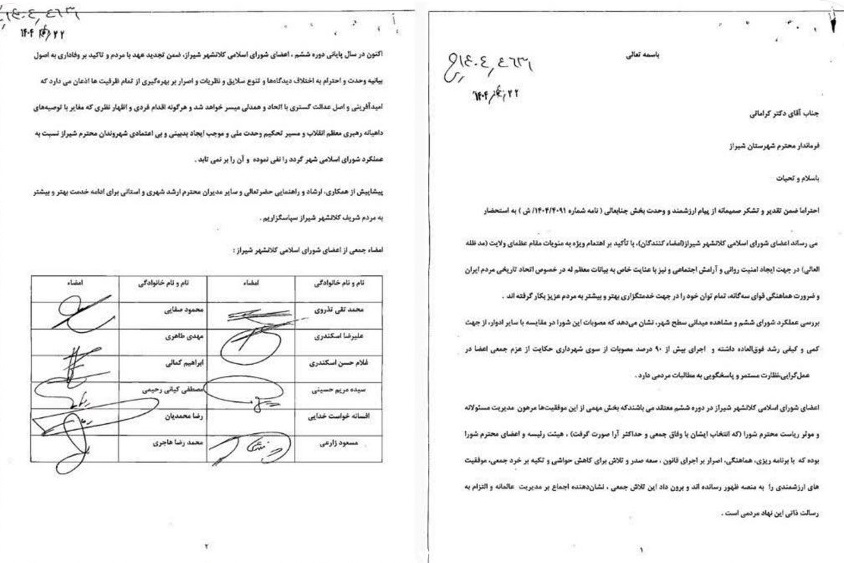 باسمه تعالی
۱۴۰۴٫۴۶۳۱
۱۴۰۴
جناب آقای دکتر کرامائی
فرماندار محترم شهرستان شیراز
باسلام و تحیات
احتراما ضمن تقدیر و تشکر صمیمانه از پیام ارزشمند و وحدت بخش جنابعالی ( نامه شماره ۱۴۰۴/۴۰۹۱/ ش ) به استحضار
می رساند اعضای شورای اسلامی کلانشهر شیراز(امضاء کنندگان)، با تأکید بر اهتمام ویژه به منویات مقام عظمای ولایت (مد ظله
العالی) در جهت ایجاد امنیت روانی و آرامش اجتماعی و نیز با عنایت خاص به بیانات معظم له در خصوص اتحاد تاریخی مردم ایران
و ضرورت هماهنگی قوای سه‌گانه، تمام توان خود را در جهت خدمتگزاری بهتر و بیشتر به مردم عزیز بکار گرفته اند .
بررسی عملکرد شورای ششم و مشاهده میدانی سطح شهر، نشان می‌دهد که مصوبات این شورا در مقایسه با سایر ادوار، از جهت
کمی و کیفی رشد فوق‌العاده داشته و اجرای بیش از ۹۰ درصد مصوبات از سوی شهرداری حکایت از عزم جمعی اعضا در
عمل‌گرایی،نظارت مستمر و پاسخگویی به مطالبات مردمی دارد .
اعضای شورای اسلامی کلانشهر شیراز در دوره ششم معتقد می باشندکه بخش مهمی از این موفقیت‌ها مرهون مدیریت مسئولانه
و موثر ریاست محترم شورا (که انتخاب ایشان با وفاق جمعی و حداکثر آرا صورت گرفت) ، هیئت رئیسه و اعضای محترم شورا
بوده که با برنامه ریزی، هماهنگی، اصرار بر اجرای قانون ، سعه صدر و تلاش برای کاهش حواشی و تکیه بر خرد جمعی، موفقیت
های ارزشمندی را به منصه ظهور رسانده اند و برون داد این تلاش جمعی ، نشان‌دهنده اجماع بر مدیریت عالمانه و التزام به
رسالت ذاتی این نهاد مردمی است .
۱
۱۴۰۴٫۴۶۳۱
۱۴۰۴
اکنون در سال پایانی دوره ششم ، اعضای شورای اسلامی کلانشهر شیراز، ضمن تجدید عهد با مردم و تاکید بر وفاداری به اصول
بیانیه وحدت و احترام به اختلاف دیدگاه‌ها و تنوع سلایق و نظریات و اصرار بر بهره‌گیری از تمام ظرفیت ها اذعان می دارد که
امیدآفرینی و اصل عدالت گستری با اتحاد و همدلی میسر خواهد شد و هرگونه اقدام فردی و اظهار نظری که مغایر با توصیه‌های
داهیانه رهبری معظم انقلاب و مسیر تحکیم وحدت ملی و موجب ایجاد بدبینی و بی اعتمادی شهروندان محترم شیراز نسبت به
عملکرد شورای اسلامی شهر گردد را نفی نموده و آن را بر نمی تابد .
پیشاپیش از همکاری، ارشاد و راهنمایی حضرتعالی و سایر مدیران محترم ارشد شهری و استانی برای ادامه خدمت بهتر و بیشتر
به مردم شریف کلانشهر شیراز سپاسگزاریم .
امضاء جمعی از اعضای شورای اسلامی کلانشهر شیراز :
نام و نام خانوادگی امضاء نام و نام خانوادگی امضاء
محمد تقی تذروی محمود صفایی
علیرضا اسکندری مهدی طاهری
غلام حسن اسکندری ابراهیم کمائی
سیده مریم حسینی مصطفی کیانی رحیمی
افسانه خواست خدایی رضا محمدیان
مسعود زارعی محمد رضا هاجری
۲